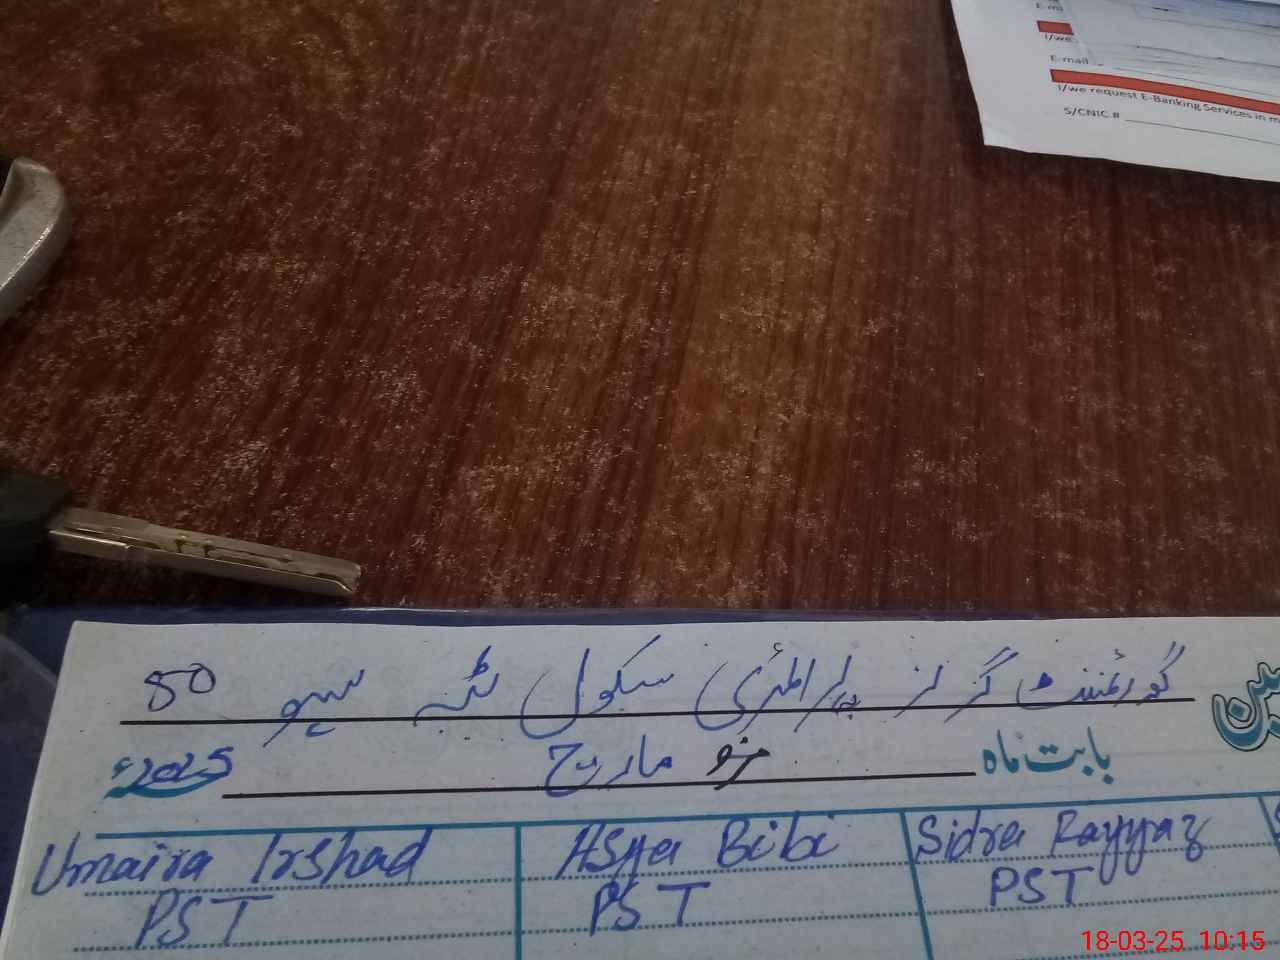 E-mail
I/we
E-mail
I/we request E-Banking Services in m
S/CNIC #
گورنمنٹ گرلز پرائمری سکول ٹبہ 50
بابت ماہ مارچ 2025ء
Umaira Irshad
PST
Asya Bibi
PST
Sidra Rayyaz
PST
18-03-25 10:15